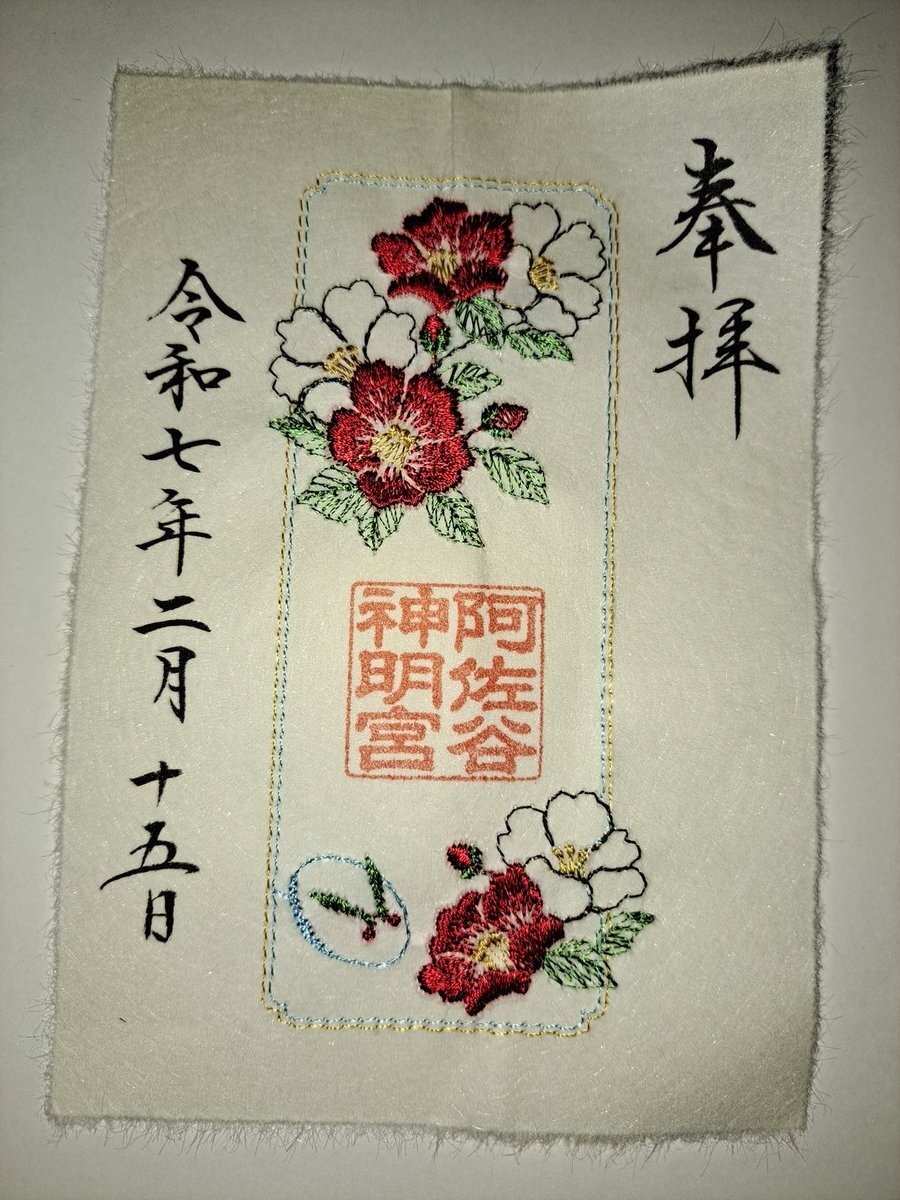 奉拝
阿佐谷
神明宮
令和七年二月十五日